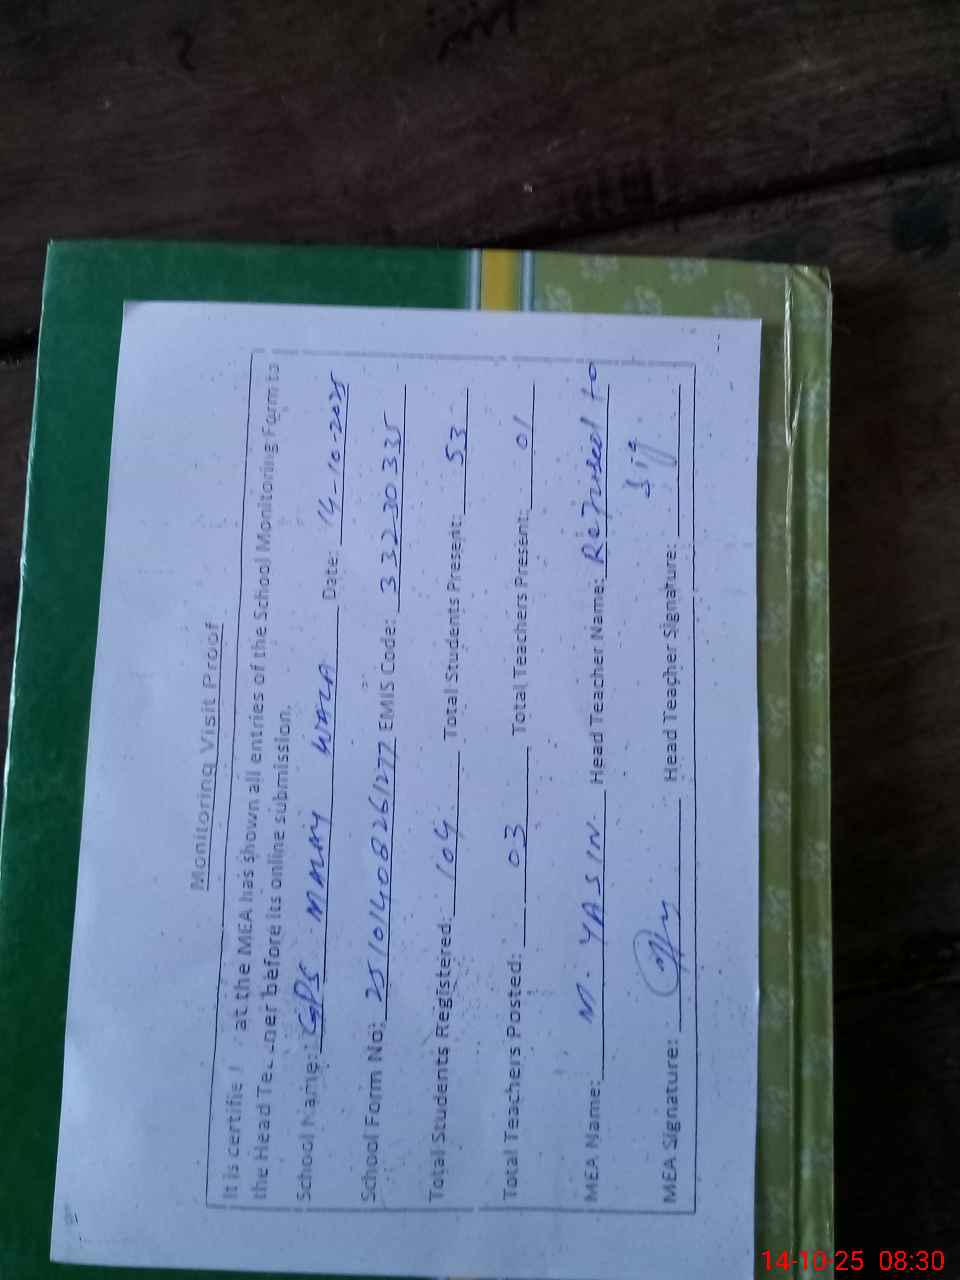 Monitoring Visit Proof
It is certifie at the MEA has shown all entries of the School Monitoring Form to
the Head Te ner before its online submission.
School Name: GPS MMAY WALA Date: 14-10-2025
School Form No: 25101408261277 EMIS Code: 33230335
Total Students Registered: 104 Total Students Present: 53
Total Teachers Posted: 03 Total Teachers Present: 01
MEA Name: M. YASIN. Head Teacher Name: Refused to
MEA Signature: Head Teacher Signature: sig
14-10-25 08:30